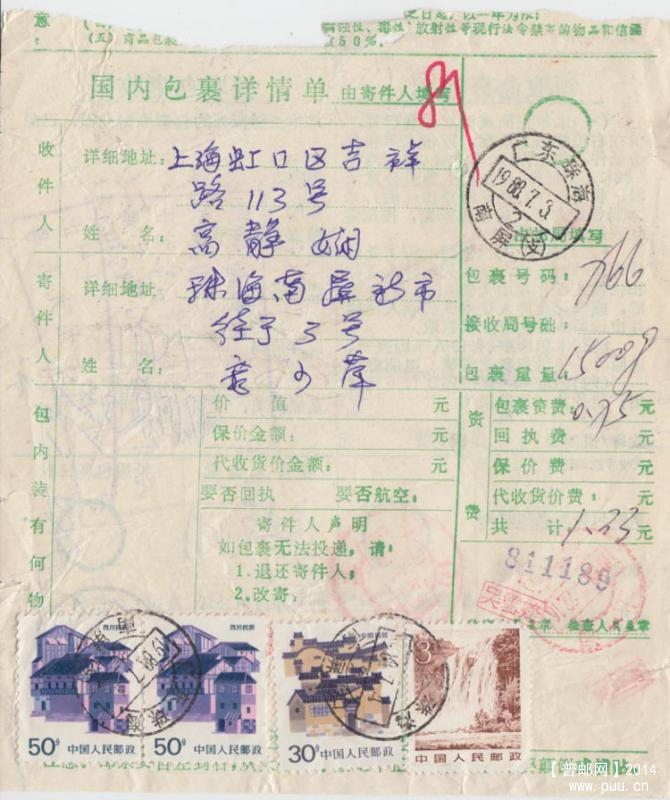 (五) 商品包裹
腐蚀性、毒性、放射性等现行法令禁寄的物品和信函
150%.
国内包裹详情单 由寄件人填写
81
收件人
详细地址: 上海虹口区吉祥
路113号
姓 名: 高静娴
广东珠海
1988.7.3
2
南屏(支)
寄件人
详细地址 珠海南屏
3号
姓 名:
填写
包裹号码: 766
接收局号码:
包裹重量 1500g
包内装有何物
价 值 元
保价金额: 元
代收货价金额: 元
要否回执 要否航空:
寄件人声明
如包裹无法投递, 请:
1.退还寄件人;
2.改寄:
资费
包裹资费: 0.75元
回执费: 元
保价费: 元
代收货价费: 元
共 计 1.33元
811189
检查人员盖章
四川民居
50分 中国人民邮政
四川民居
50分 中国人民邮政
30分 中国人民邮政
3
中国人民邮政
【普邮网】2014
www.puu.cn